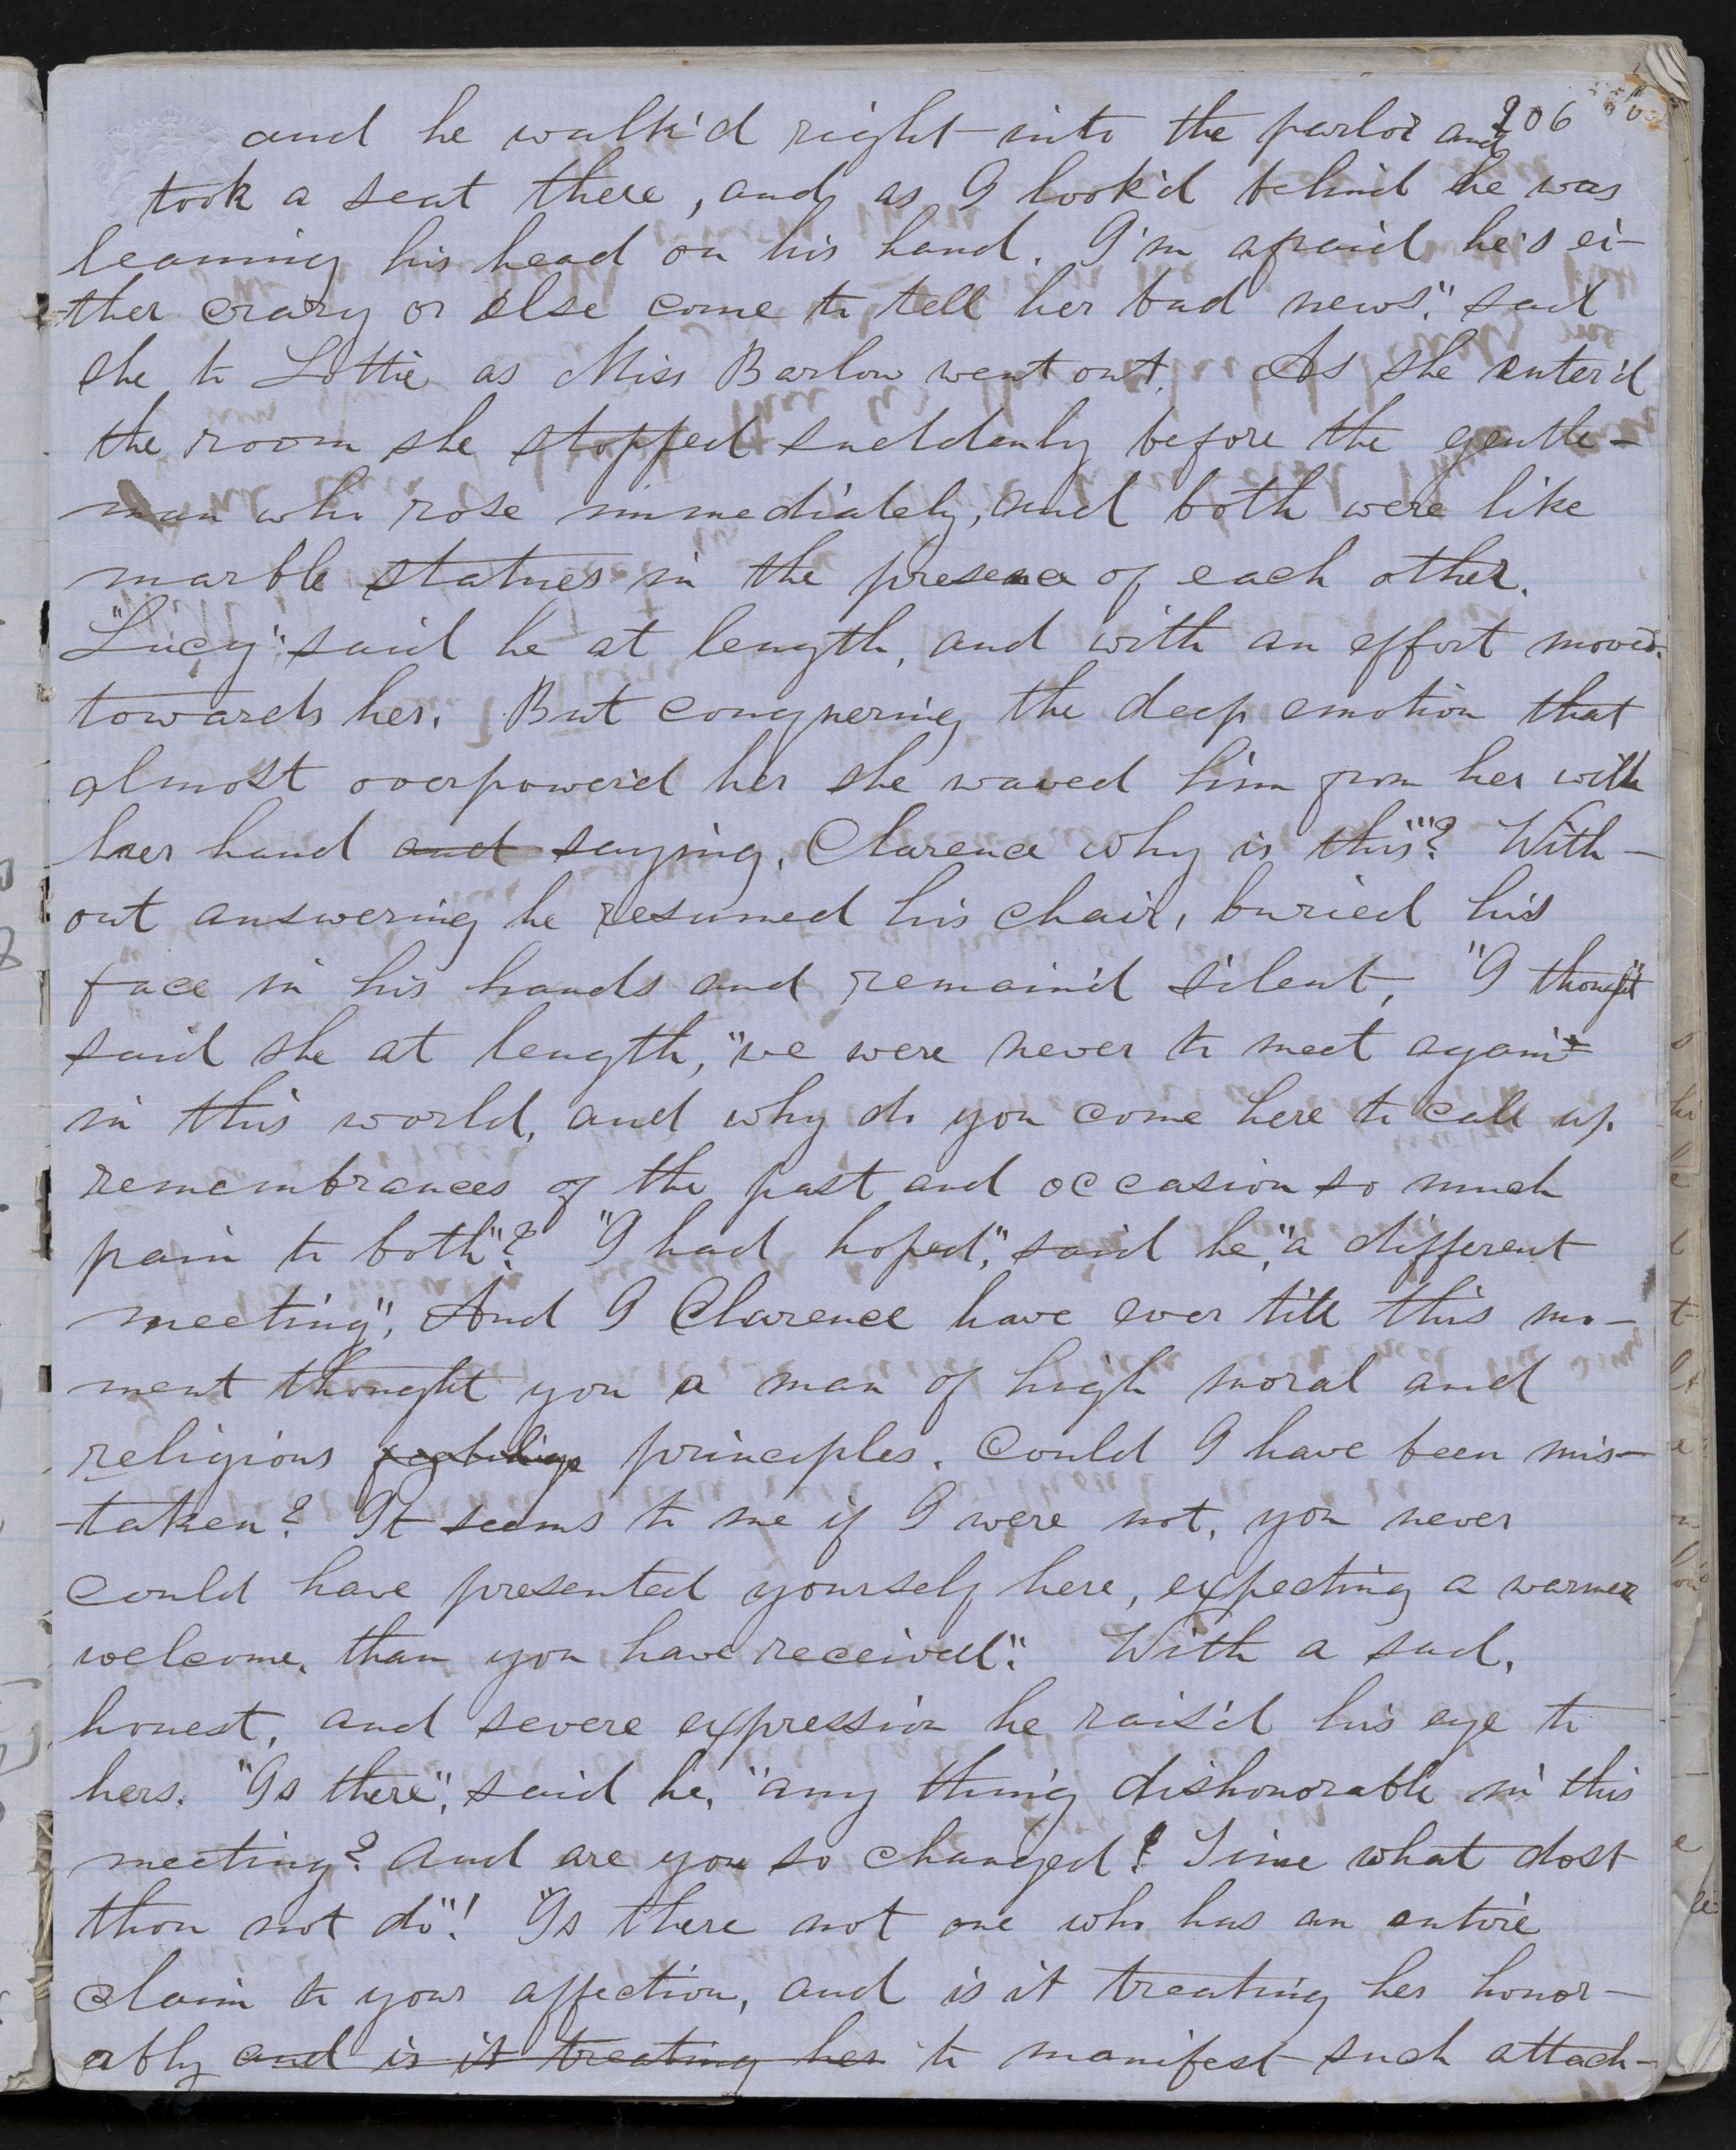 206
and he walk'd right into the parlor and
took a seat there, and as I look'd behind he was
leaning his head on his hand. I'm afraid he's ei-
ther crazy or else come to tell her bad news", said
she to Lottie as Miss Barlow went out. As she enter'd
the room she stopped suddenly before the gentle-
man who rose immediately, and both were like
marble statues in the presence of each other.
"Lucy" said he at length, and with an effort moved
towards her. But conquering the deep emotion that
almost overpower'd her she waved him from her with
her hand and saying, Clarence why is this"? With-
out answering he resumed his chair, buried his
face in his hands and remain'd silent, "I thought"
said she at length, "we were never to meet again
in this world, and why do you come here to call up
remembrances of the past and occasion so much
pain to both"? "I had hoped," said he, "a different
meeting". And I Clarence have ever till this mo-
ment thought you a man of high moral and
religious principles. Could I have been mis-
taken? It seems to me if I were not, you never
could have presented yourself here, expecting a warmer
welcome, than you have received". With a sad,
honest, and severe expression he rais'd his eye to
hers. "Is there", said he, "any thing dishonorable in this
meeting? And are you so changed! Time what dost
thou not do"! "Is there not one who has an entire
claim to your affection, and is it treating her honor-
ably and is it treating her to manifest such attach-